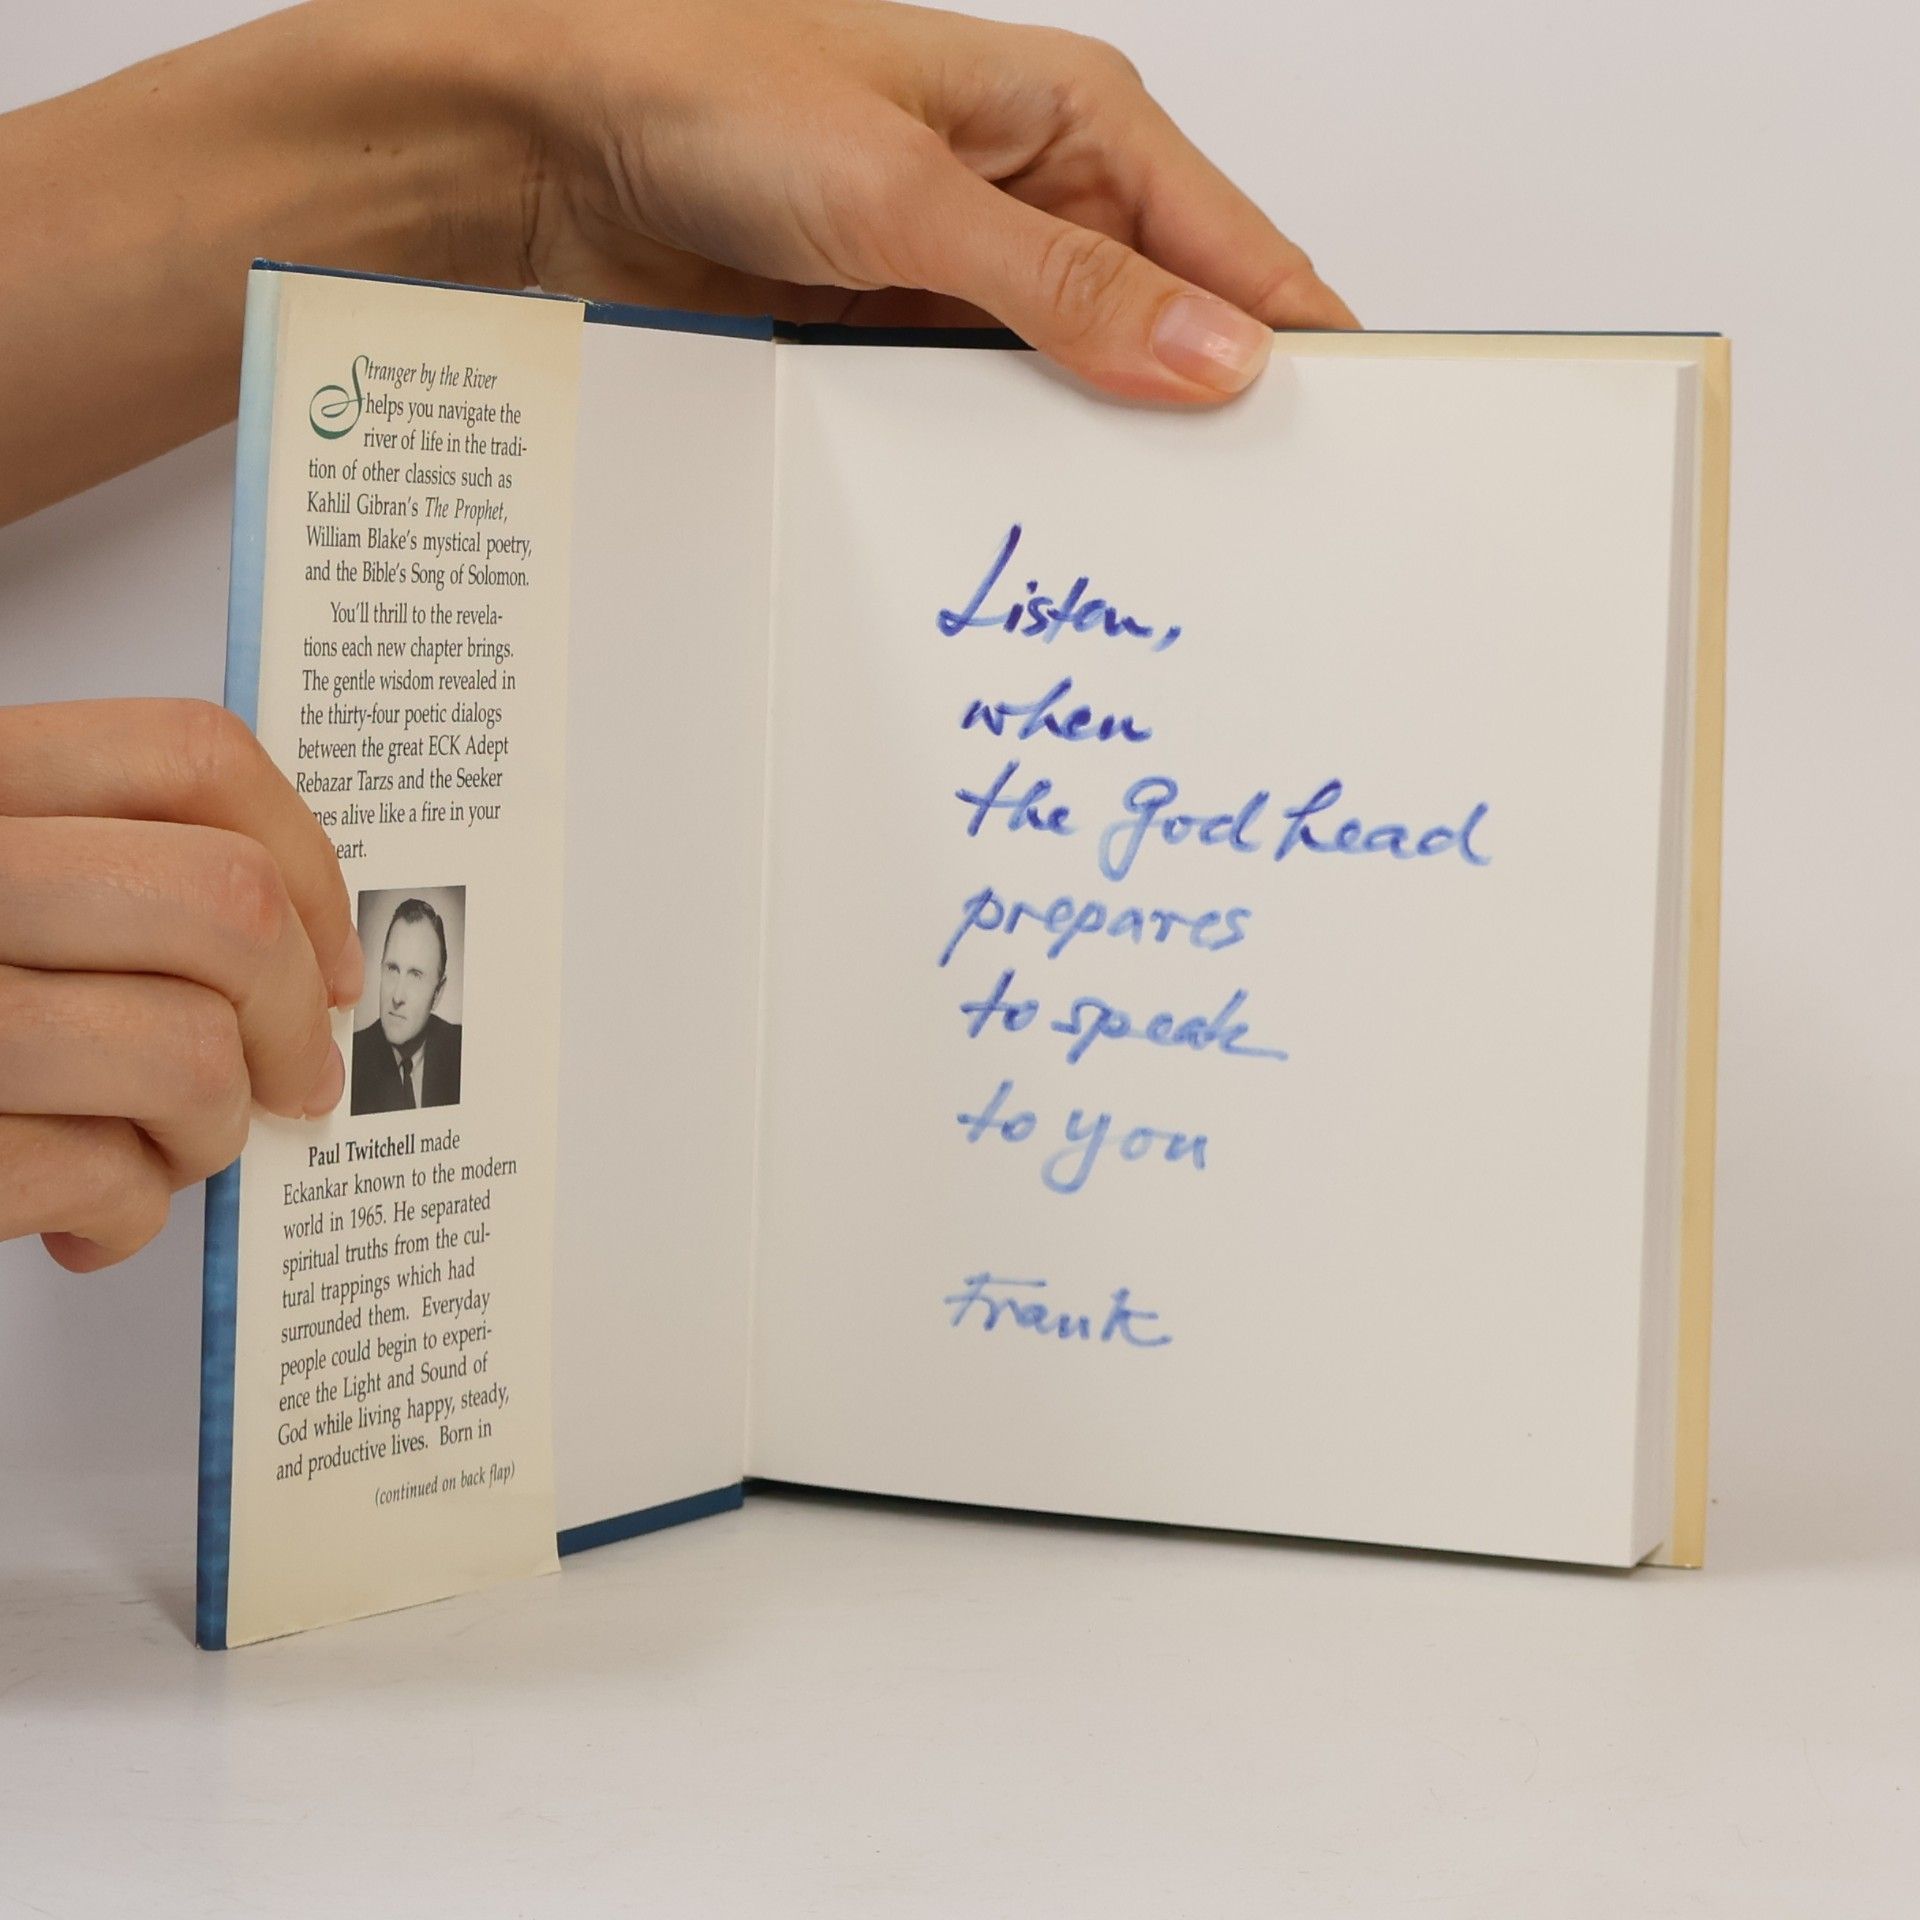 Stranger by the River
helps you navigate the
river of life in the tradi-
tion of other classics such as
Kahlil Gibran's The Prophet,
William Blake's mystical poetry,
and the Bible's Song of Solomon.
You'll thrill to the revela-
tions each new chapter brings.
The gentle wisdom revealed in
the thirty-four poetic dialogs
between the great ECK Adept
Rebazar Tarzs and the Seeker
mes alive like a fire in your
eart.
Paul Twitchell made
Eckankar known to the modern
world in 1965. He separated
spiritual truths from the cul-
tural trappings which had
surrounded them. Everyday
people could begin to experi-
ence the Light and Sound of
God while living happy, steady,
and productive lives. Born in
(continued on back flap)
Listen,
when
the God head
prepares
to speak
to you
Frank